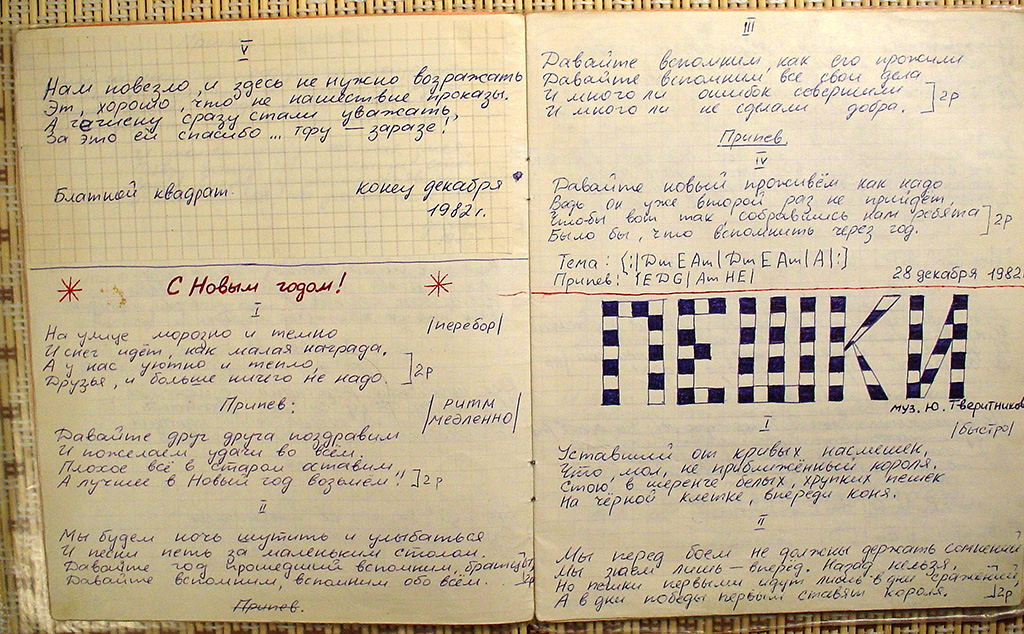 V
Нам повезло, и здесь не нужно возражать
Эт, хорошо, что не нашествие проказы.
А гигиену сразу стали уважать,
За это ей спасибо... тфу – заразе!
Блатной квадрат.
конец декабря
1982г.
С Новым годом!
I
На улице морозно и темно
/перебор/
И снег идёт, как малая награда.
А у нас уютно и тепло,
Друзья, и больше ничего не надо. 2р
Припев:
/ритм
медленно/
Давайте друг друга поздравим
И пожелаем удачи во всём.
Плохое всё в старом оставим,
А лучшее в Новый год возьмём! 2р
II
Мы будем ночь шутить и улыбаться
И песни петь за маленьким столом.
Давайте год прошедший вспомним, братцы,
Давайте вспомним, вспомним обо всём. 2р
Припев.
III
Давайте вспомним, как его прожили
Давайте вспомним все свои дела
И много ли ошибок совершили
И много ли не сделали добра. 2р
Припев.
IV
Давайте новый проживём как надо
Ведь он уже второй раз не придёт,
Чтобы вот так, собравшись нам ребята
Было бы, что вспомнить через год. 2р
Тема: {:| Dm E Am | Dm E Am | A |:}
Припев: {E D G | Am H E |
28 декабря 1982г
ПЕШКИ
муз. Ю. Тверитников
I
/быстро/
Уставший от кривых насмешек,
Что, мол, не приближённый короля.
Стою, в шеренге белых, хрупких пешек
На чёрной клетке, впереди коня.
II
Мы перед боем не должны держать сомнений
Мы знаем лишь – вперёд. Назад нельзя.
Но пешки первыми идут лишь в дни сражений,
А в дни победы первым ставят короля. 2р